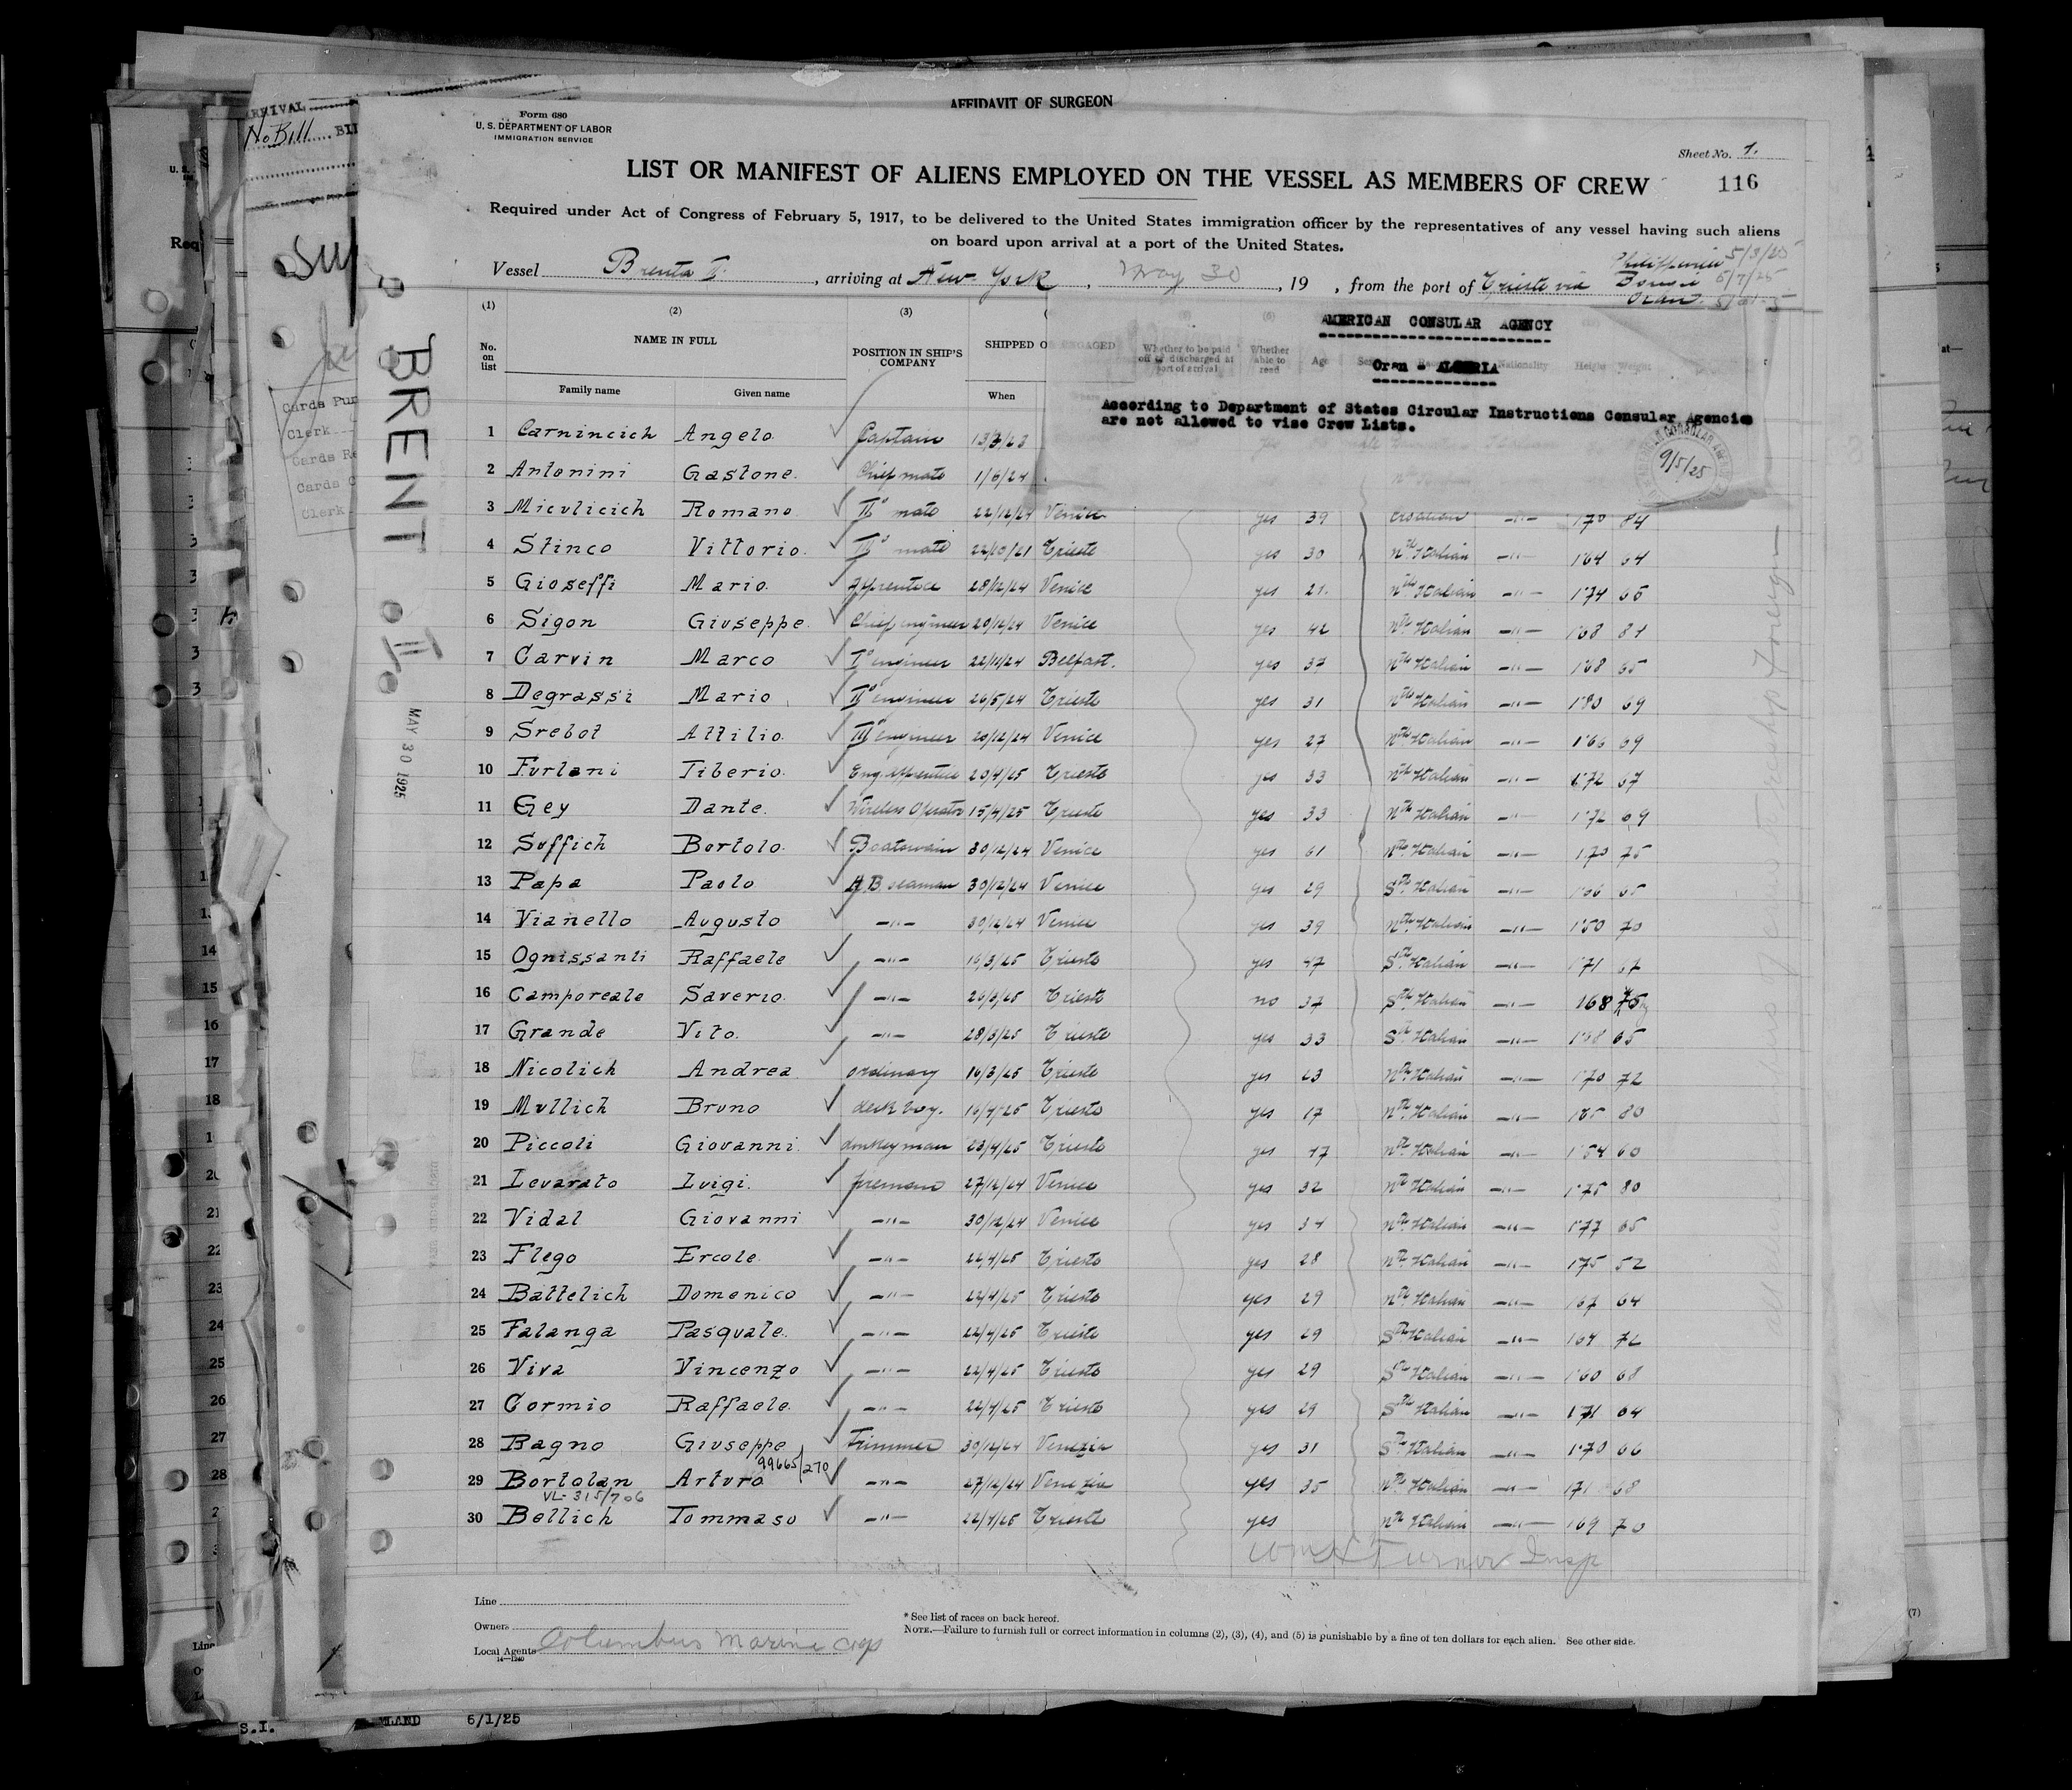 AFFIDAVIT OF SURGEON
Form 680
U. S. DEPARTMENT OF LABOR
IMMIGRATION SERVICE
Sheet No. 1.
LIST OR MANIFEST OF ALIENS EMPLOYED ON THE VESSEL AS MEMBERS OF CREW
116
Required under Act of Congress of February 5, 1917, to be delivered to the United States immigration officer by the representatives of any vessel having such aliens
on board upon arrival at a port of the United States.
Vessel Brenta II. , arriving at New-York , May 30 , 19 , from the port of Trieste via
Philippeville 5/3/25
Bougie 5/7/25
Oran
(1) (2) (3)
No. on list NAME IN FULL POSITION IN SHIP'S COMPANY SHIPPED O ENGAGED
Family name Given name When
Whether to be paid off or discharged at port of arrival Whether able to read Age Nationality Height Weight
AMERICAN CONSULAR AGENCY
Oran - ALGERIA
According to Department of States Circular Instructions Consular Agencies
are not allowed to vise Crew Lists.
9/5/25
1 Carnincich Angelo Captain
2 Antonini Gastone. Chief mate 1/6/24
3 Micvlicich Romano IIº mate 22/12/24 Venice yes 39 Croatian -"- 1'70 84
4 Stinco Vittorio. IIIº mate 22/10/21 Trieste yes 30 Nth Italian -"- 1'64 64
5 Gioseffi Mario. Apprentice 28/12/24 Venice yes 21. Nth Italian -"- 1'74 65
6 Sigon Givseppe. Chief engineer 20/12/24 Venice yes 42 Nth Italian -"- 1'68 81
7 Carvin Marco Iº engineer 22/10/24 Belfast. yes 37 Nth Italian -"- 1'68 65
8 Degrassi Mario IIº engineer 26/5/24 Trieste yes 31 Nth Italian -"- 1'80 69
9 Srebot Attilio. IIIº engineer 20/12/24 Venice yes 27 Nth Italian -"- 1'66 69
10 Fvrlani Tiberio. Eng. Apprentice 20/4/25 Trieste yes 33 Nth Italian -"- 1'72 67
11 Gey Dante. Wireless Operator 15/4/25 Trieste yes 33 Nth Italian -"- 1'72 69
12 Svffich Bortolo. Boatswain 30/12/24 Venice yes 61 Nth Italian -"- 1'70 75
13 Papa Paolo A.B seaman 30/12/24 Venice yes 29 Sth Italian -"- 1'66 65
14 Vianello Avgusto -"- 30/12/24 Venice yes 39 Nth Italian -"- 1'50 70
15 Ognissanti Raffaele -"- 16/3/25 Trieste yes 47 Sth Italian -"- 1'71 67
16 Camporeale Saverio. -"- 26/3/25 Trieste no 37 Sth Italian -"- 168 75
17 Grande Vito. -"- 28/3/25 Trieste yes 33 Sth Italian -"- 1'68 65
18 Nicolich Andrea ordinary 16/3/25 Trieste yes 23 Nth Italian -"- 1'70 72
19 Mvllich Brvno deck boy. 16/4/25 Trieste yes 17 Nth Italian -"- 185 80
20 Piccoli Giovanni. donkeyman 23/4/25 Trieste yes 47 Nth Italian -"- 1'54 60
21 Levarato Lvigi. fireman 27/12/24 Venice yes 32 Nth Italian -"- 1'75 80
22 Vidal Giovanni -"- 30/12/24 Venice yes 34 Nth Italian -"- 1'77 65
23 Flego Ercole. -"- 22/4/25 Trieste yes 28 Nth Italian -"- 175 52
24 Battelich Domenico -"- 22/4/25 Trieste yes 29 Nth Italian -"- 167 64
25 Falanga Pasqvale. -"- 22/4/25 Trieste yes 29 Sth Italian -"- 164 72
26 Viva Vincenzo -"- 22/4/25 Trieste yes 29 Sth Italian -"- 1'60 68
27 Cormio Raffaele. -"- 22/4/25 Trieste yes 29 Sth Italian -"- 171 64
28 Bagno Givseppe Trimmer 30/12/24 Venezia yes 31 Sth Italian -"- 1'70 66
99665/270
29 Bortolan Artvro -"- 27/12/24 Venezia yes 35 Nth Italian -"- 171 68
VL-315/706
30 Bellich Tommaso -"- 22/4/25 Trieste yes Nth Italian -"- 169 70
Wm H Turner Insp
Line
Owners
Local Agents Columbus Marine Corp
14—1240
* See list of races on back hereof.
NOTE.—Failure to furnish full or correct information in columns (2), (3), (4), and (5) is punishable by a fine of ten dollars for each alien. See other side.
BRENT
II
MAY 30 1925
No Bill
Clerk
S.I.
6/1/25
(7)